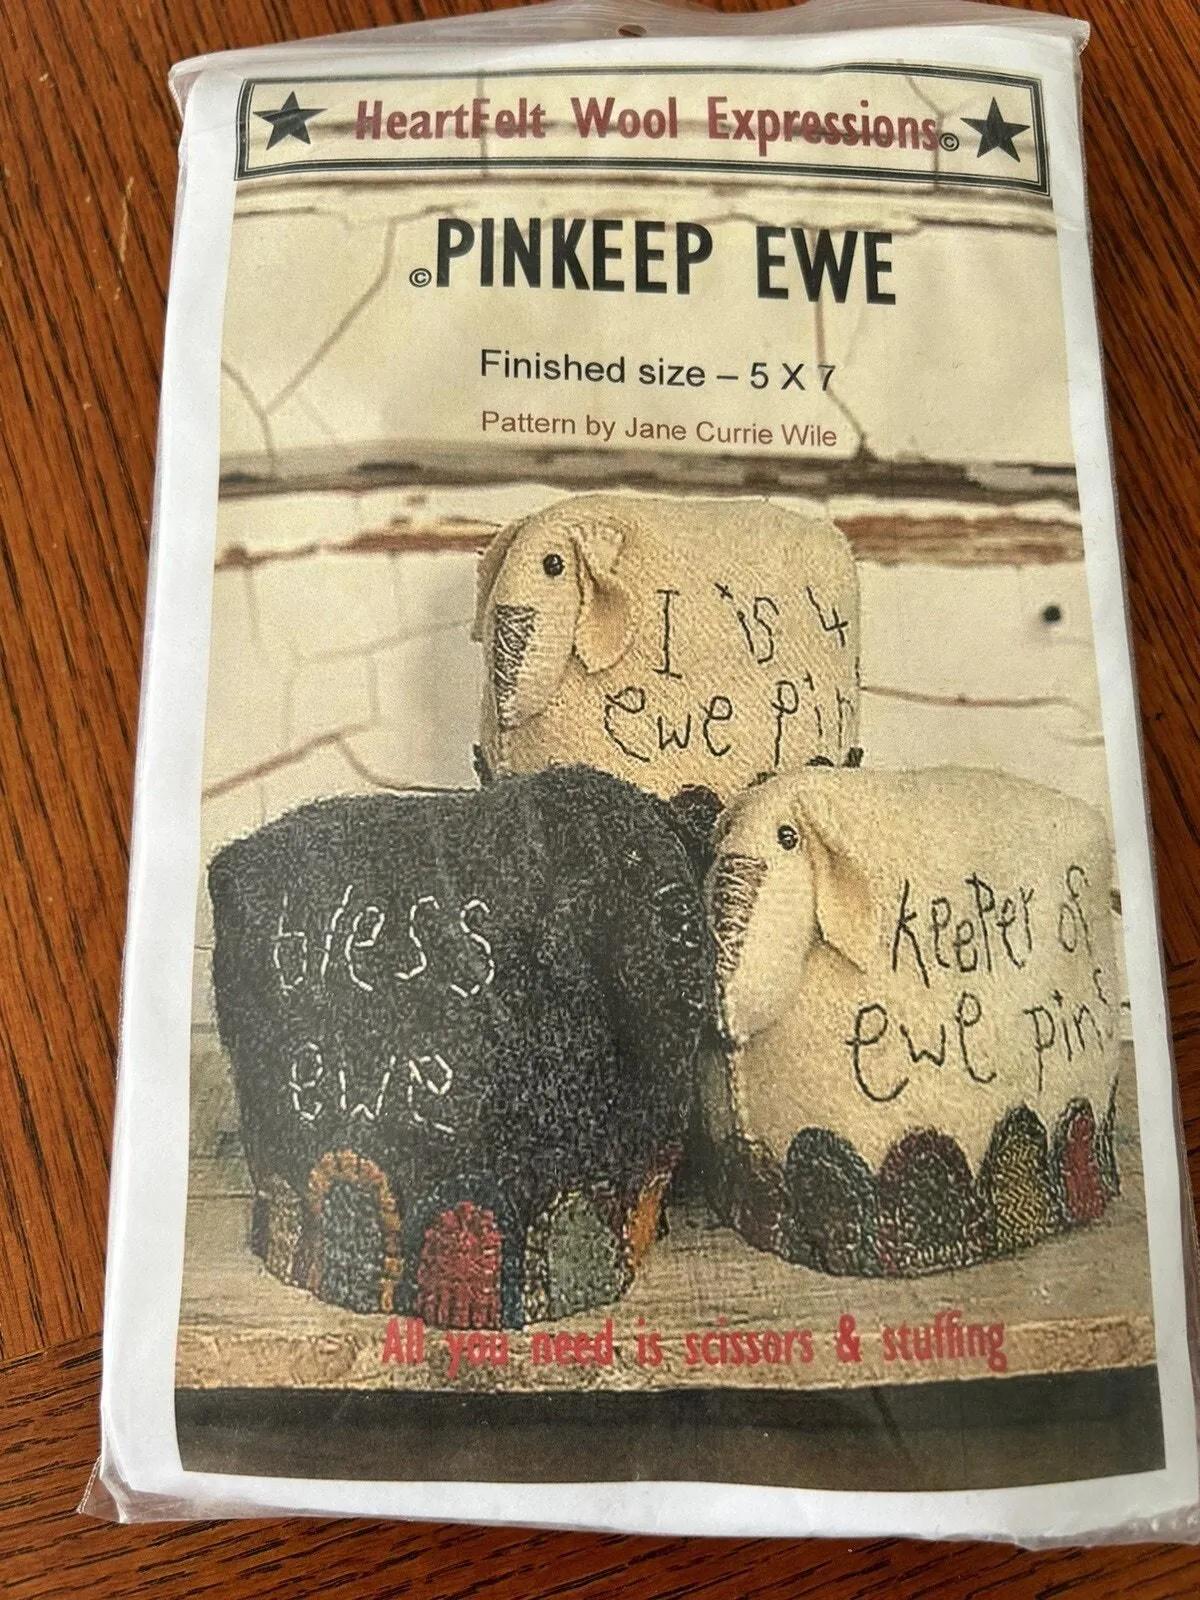 HeartFelt Wool Expressions©
©PINKEEP EWE
Finished size – 5 X 7
Pattern by Jane Currie Wile
I is 4
ewe pin
bless
ewe
keeper of
ewe pins
All you need is scissors & stuffing